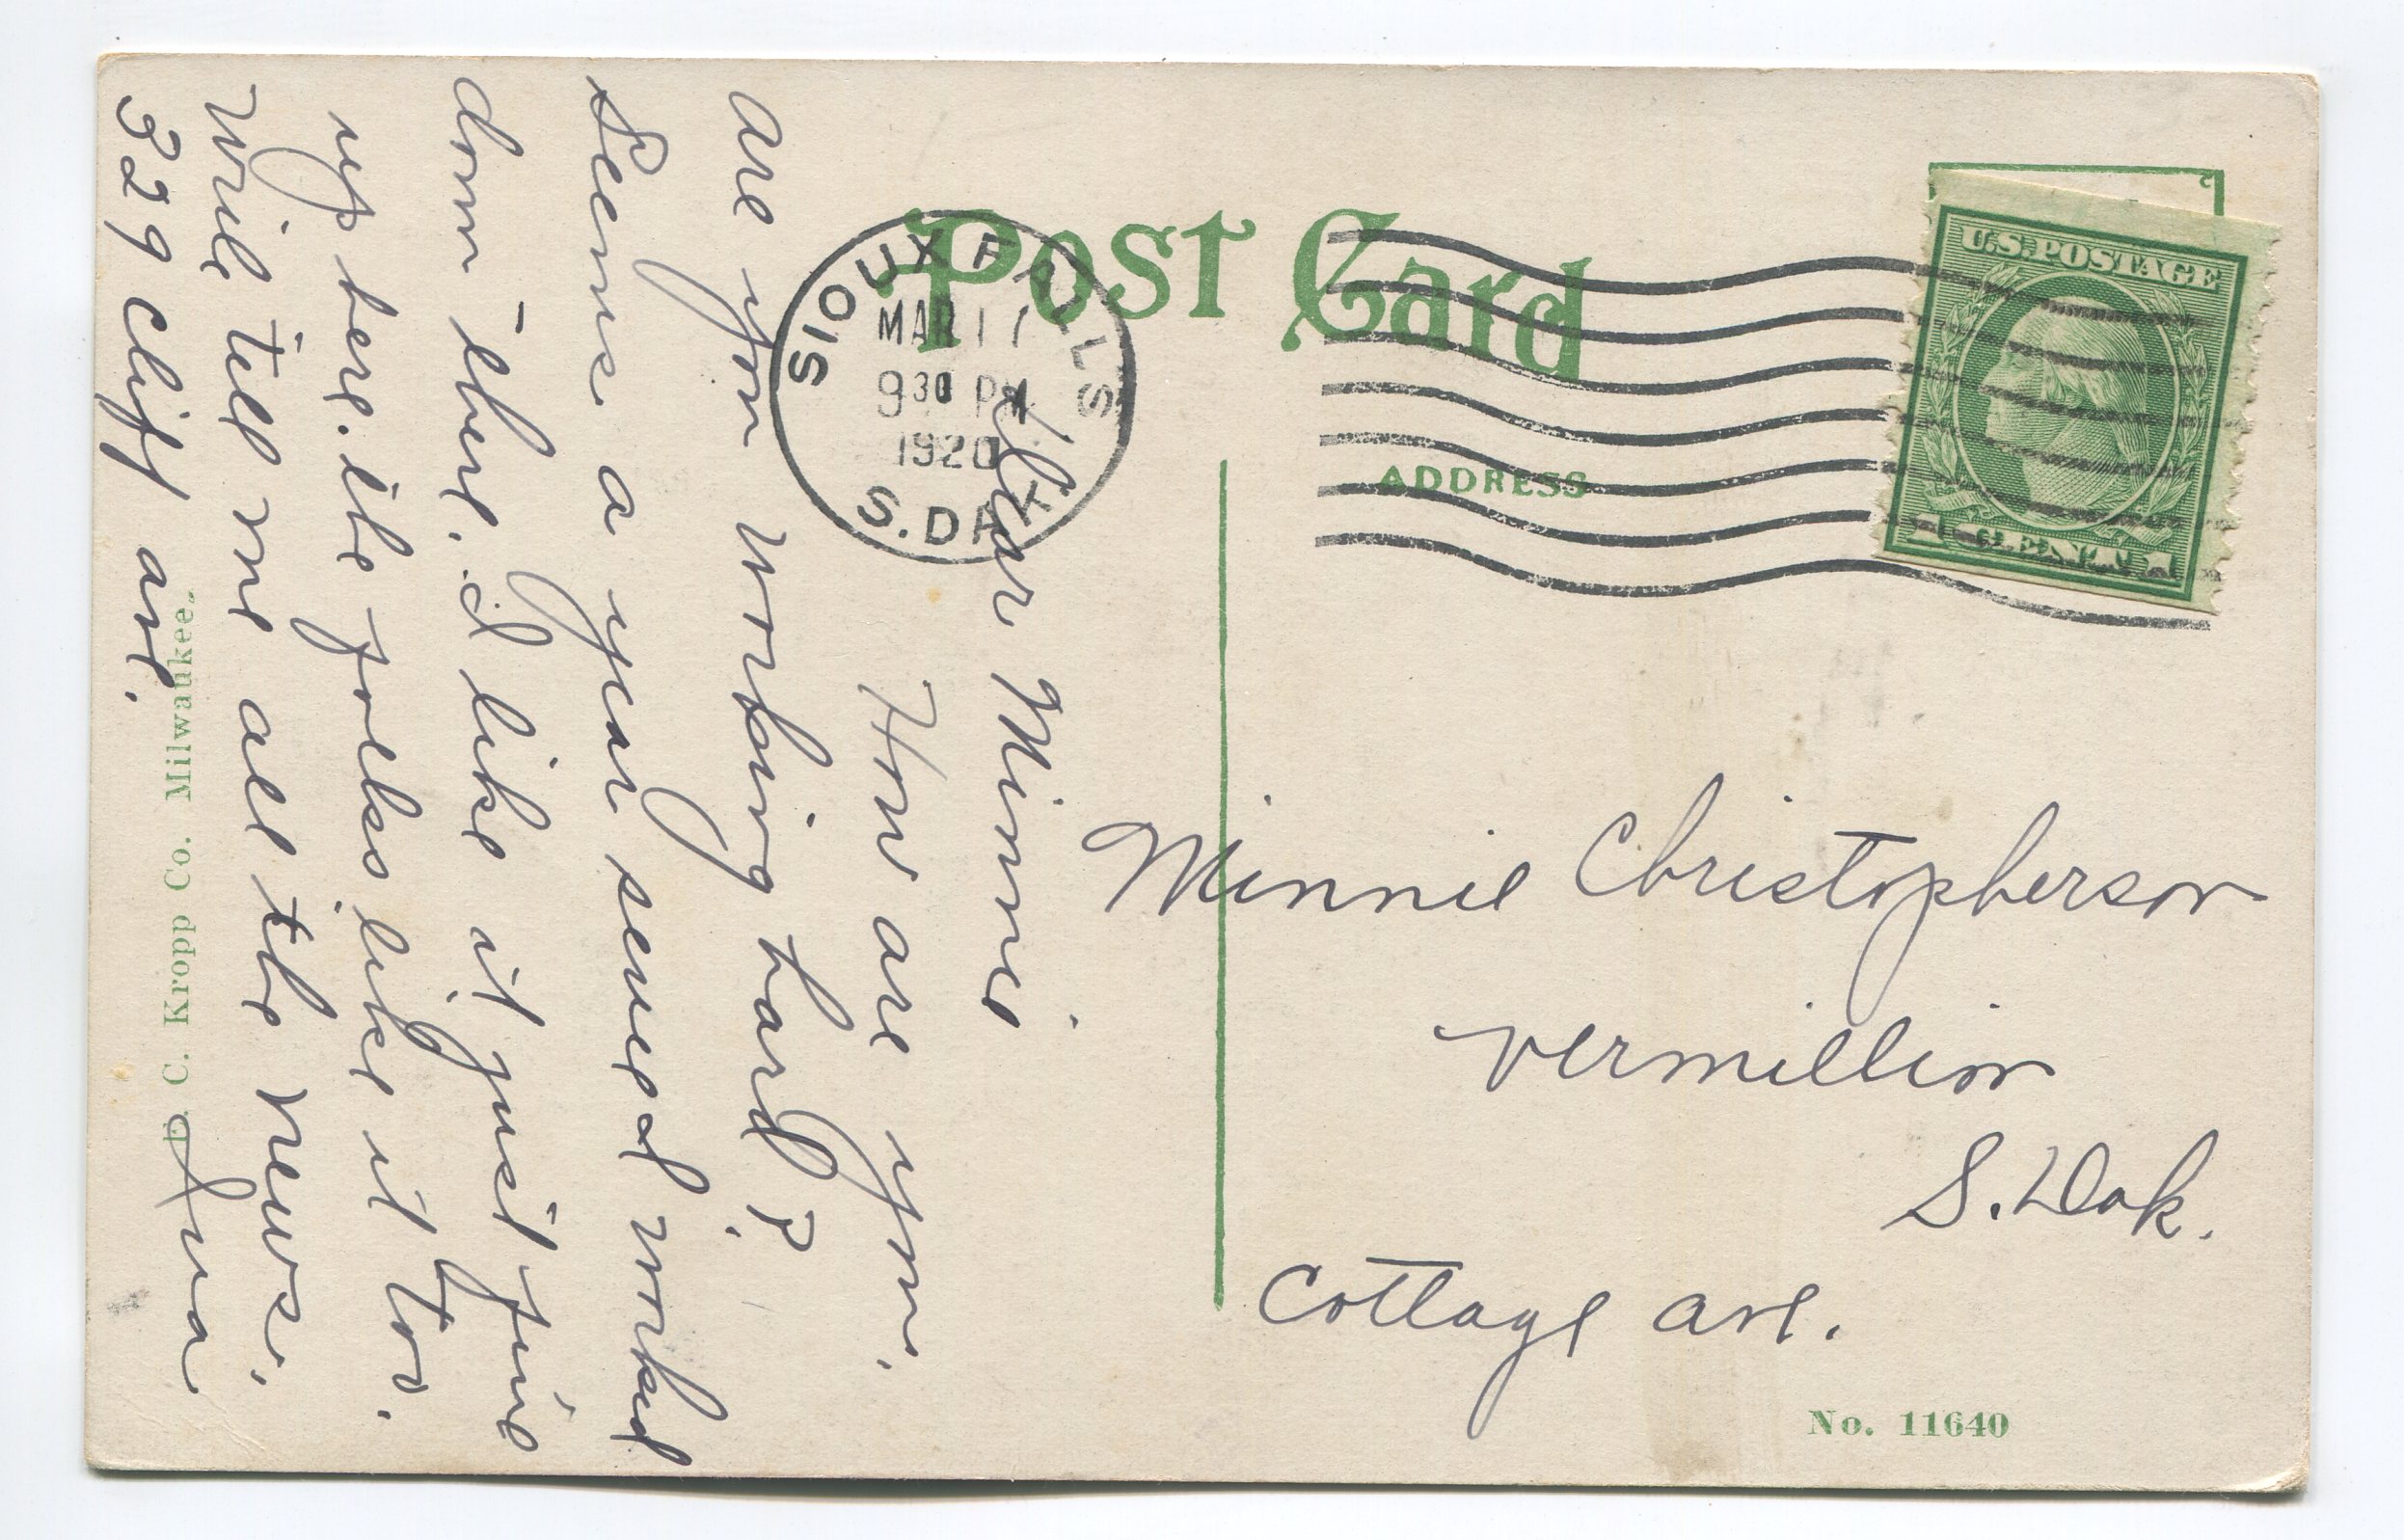 Post Card
SIOUX FALLS
MAR 17
9 30 PM
1920
S. DAK
U.S. POSTAGE
1 CENT 1
ADDRESS
Dear Minnie
How are you.
Are you working hard?
Seems a year since I worked
down there. I like it just fine
up here. The folks like it too.
Write tell me all the news.
329 Cliff Ave.
E. C. Kropp Co. Milwaukee.
Minnie Christopherson
Vermillion
S. Dak.
Cottage Ave.
No. 11640